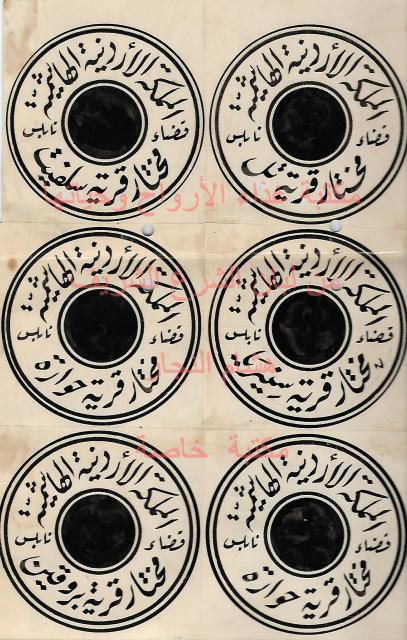 المملكة الأردنية الهاشمية
قضاء نابلس
مختار قرية تل
المملكة الأردنية الهاشمية
قضاء نابلس
مختار قرية سلفيت
مكتبة غذاء الأرواح وحياتها
المملكة الأردنية الهاشمية
قضاء نابلس
مختار قرية
المملكة الأردنية الهاشمية
قضاء نابلس
مختار قرية حوارة
من الشرع الشريف
هشام النجار
مكتبة خاصة
المملكة الأردنية الهاشمية
قضاء نابلس
مختار قرية حوارة
المملكة الأردنية الهاشمية
قضاء نابلس
مختار قرية بروقين